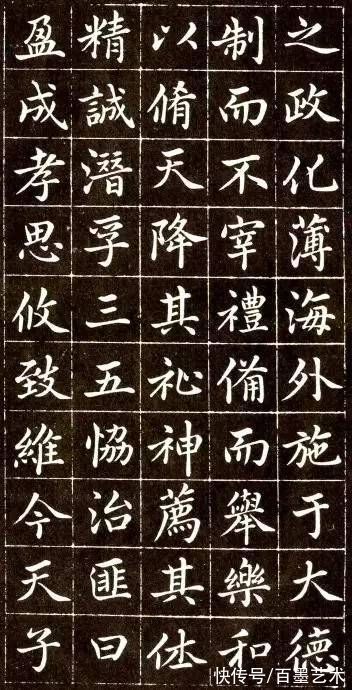 之政化薄海外施于大德
制而不宰禮備而舉樂和
以脩天降其祉神薦其休
精誠潛孚三五恊治匪曰
盈成孝思攸致維今天子
快传号/百墨艺术